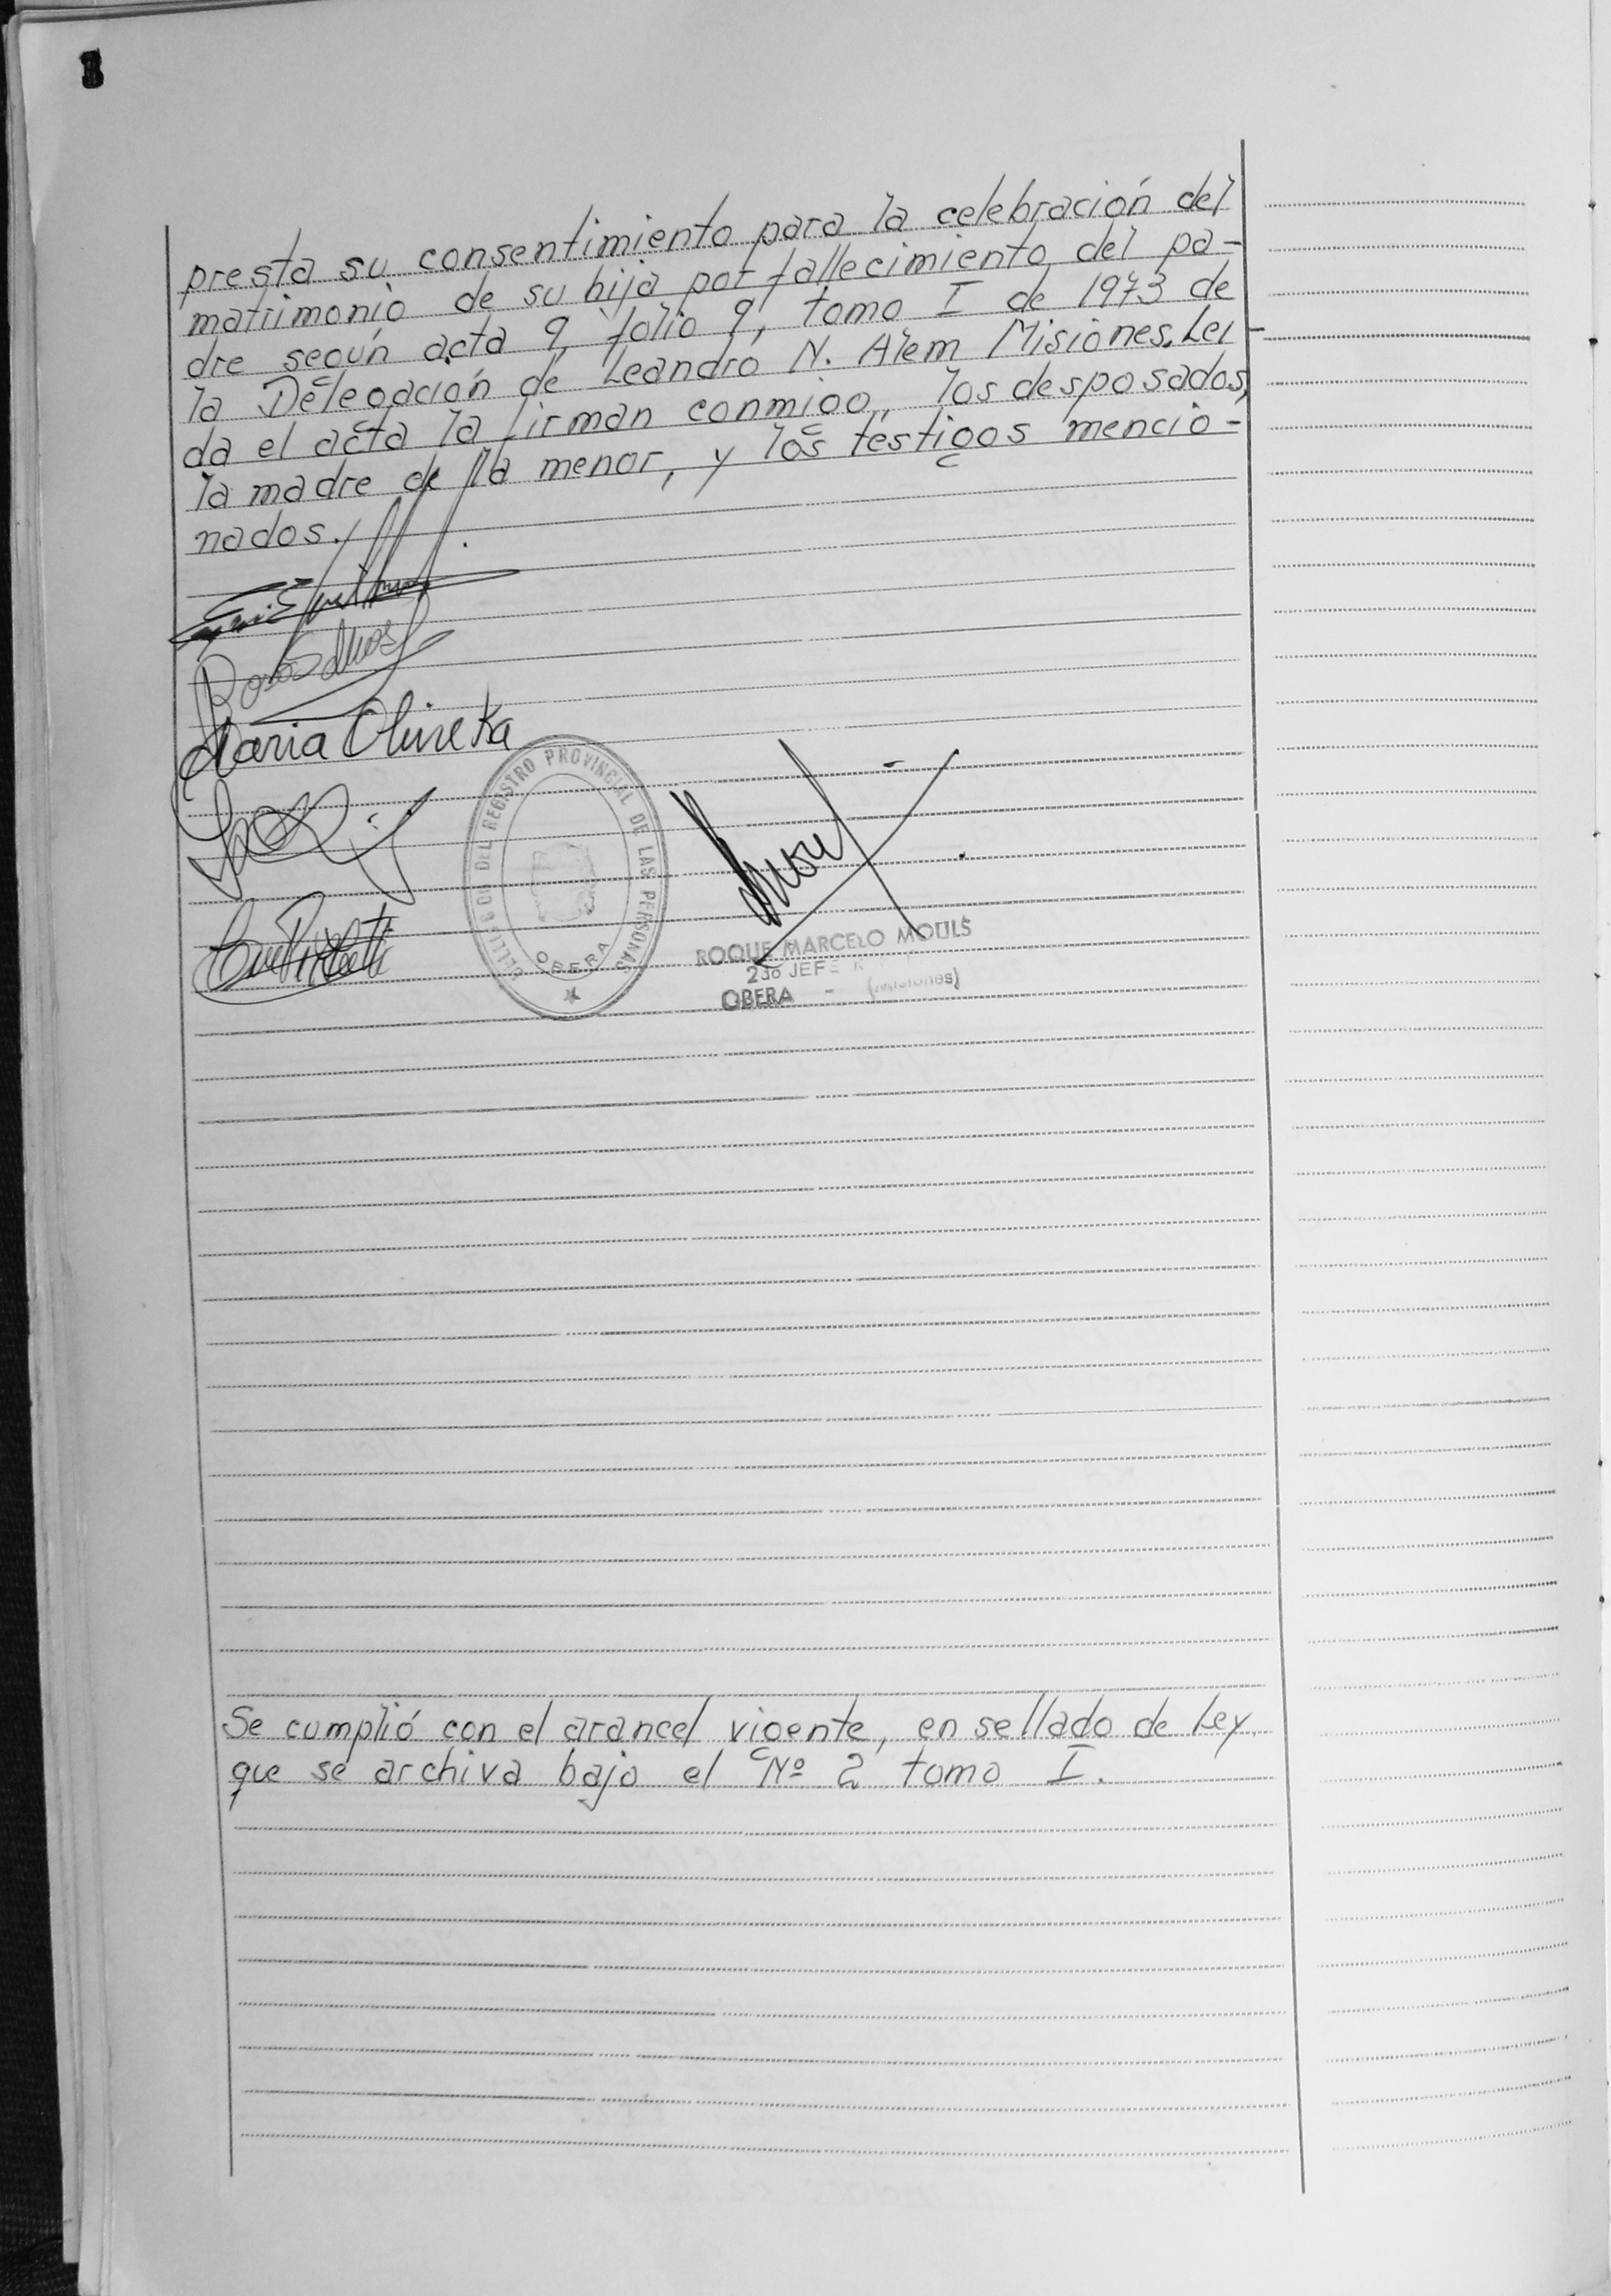 presta su consentimiento para la celebración del
matrimonio de su hija por fallecimiento del pa-
dre según acta 9, folio 9, tomo I de 1973 de
la Delegación de Leandro N. Alem Misiones. Lei-
da el acta la firman conmigo, los desposados,
la madre de la menor, y los testigos mencio-
nados.
Maria Olineka
DEL REGISTRO PROVINCIAL DE LAS PERSONAS
OBERA
ROQUE MARCELO MOULS
2do JEFE
OBERA - (Misiones)
Se cumplió con el arancel vigente, en sellado de Ley
que se archiva bajo el Nº 2 tomo I.